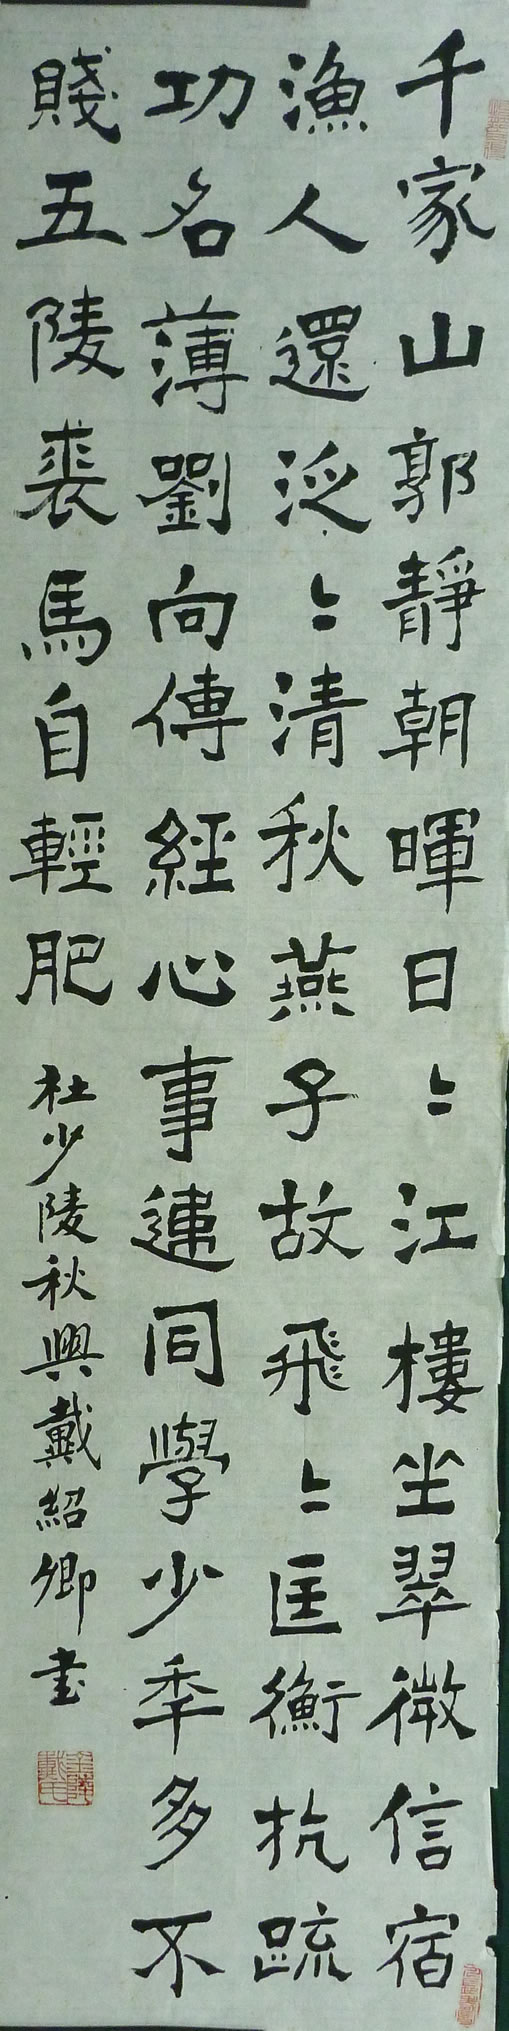 千家山郭靜朝暉日〻江樓坐翠微信宿
漁人還泛〻清秋燕子故飛〻匡衡抗疏
功名薄劉向傳經心事違同學少秊多不
賤五陵裘馬自輕肥 杜少陵秋興戴紹卿書
金陵戴氏